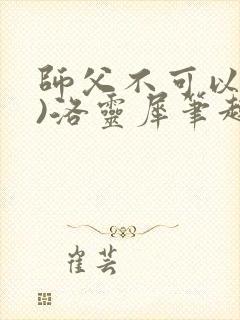 師父不可以
)洛靈犀筆趣
崔芸